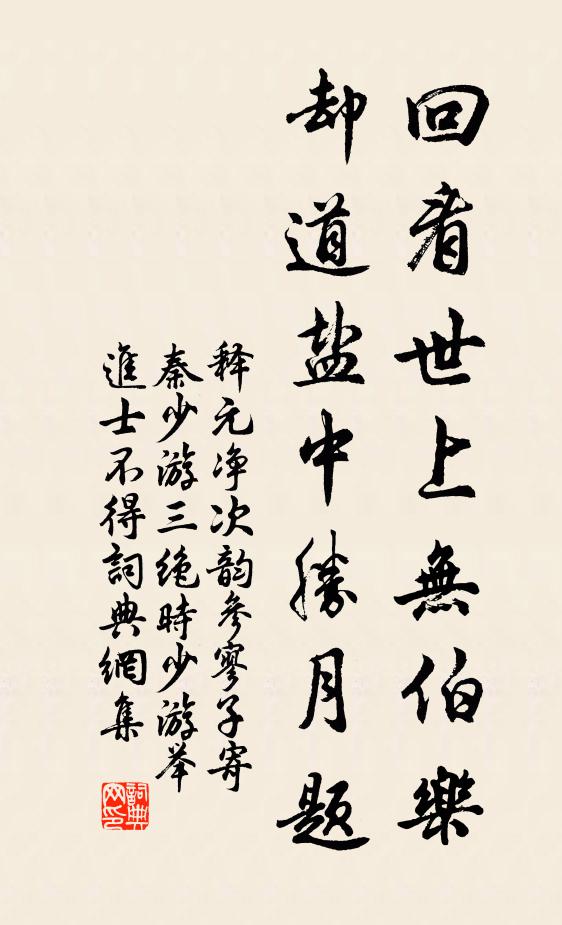 回看世上無伯樂
却道盐中勝月题
释元净次韵參寥子寄
秦少游三绝時少游举
進士不得詞典網集
詞典网印